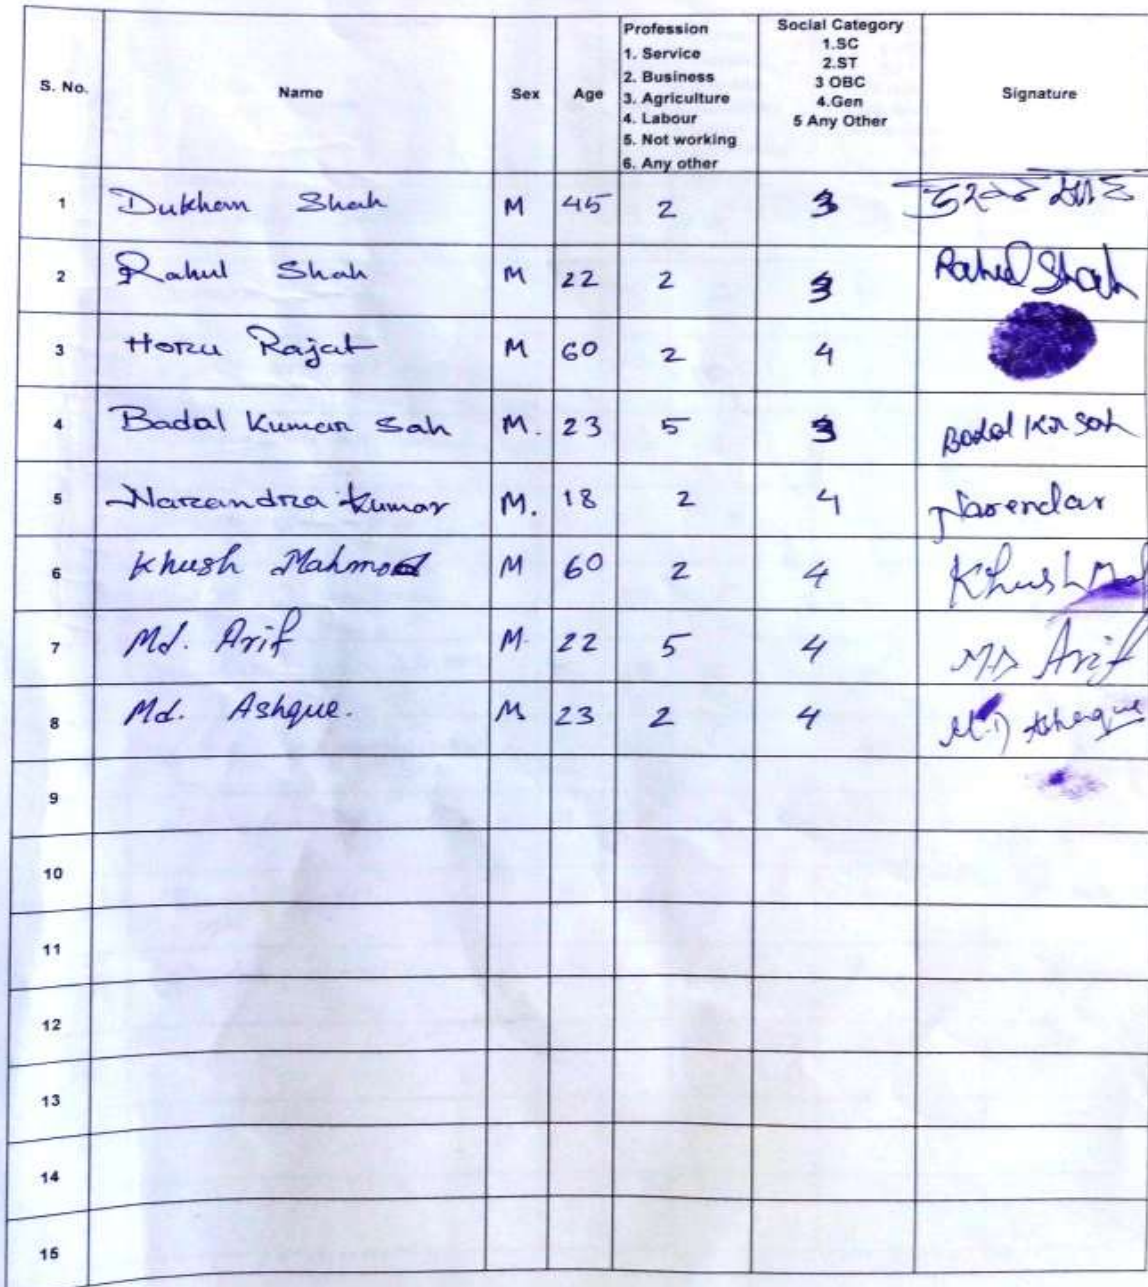 S. No. Name Sex Age Profession 1. Service 2. Business 3. Agriculture 4. Labour 5. Not working 6. Any other Social Category 1.SC 2.ST 3 OBC 4.Gen 5 Any Other Signature
1 Dukhan Shah M 45 2 3
2 Rahul Shah M 22 2 3 Rahul Shah
3 Horu Rajat M 60 2 4
4 Badal Kumar Sah M. 23 5 3 Badal Kr Sah
5 Narendra Kumar M. 18 2 4 Narendar
6 Khush Mahmod M 60 2 4 Khush
7 Md. Arif M. 22 5 4 MD Arif
8 Md. Ashque. M 23 2 4 M.D Asheque
9
10
11
12
13
14
15